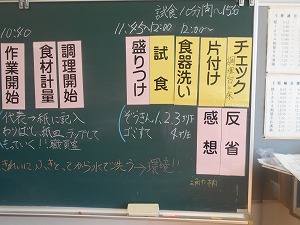 試食10分間〜15分
10:40
11:45〜12:00
12:00〜
作業開始
食材計量
調理開始
盛りつけ
試食
食器洗い
片付け
チェック
調理室
反省
感想
代表→紙に記入
わりばし、紙皿、ラップして
もっていく!!職員室
(ぞうきん1、2、3班
ゴミすて 4班
きれいにふきとってから水で洗う→環境!!